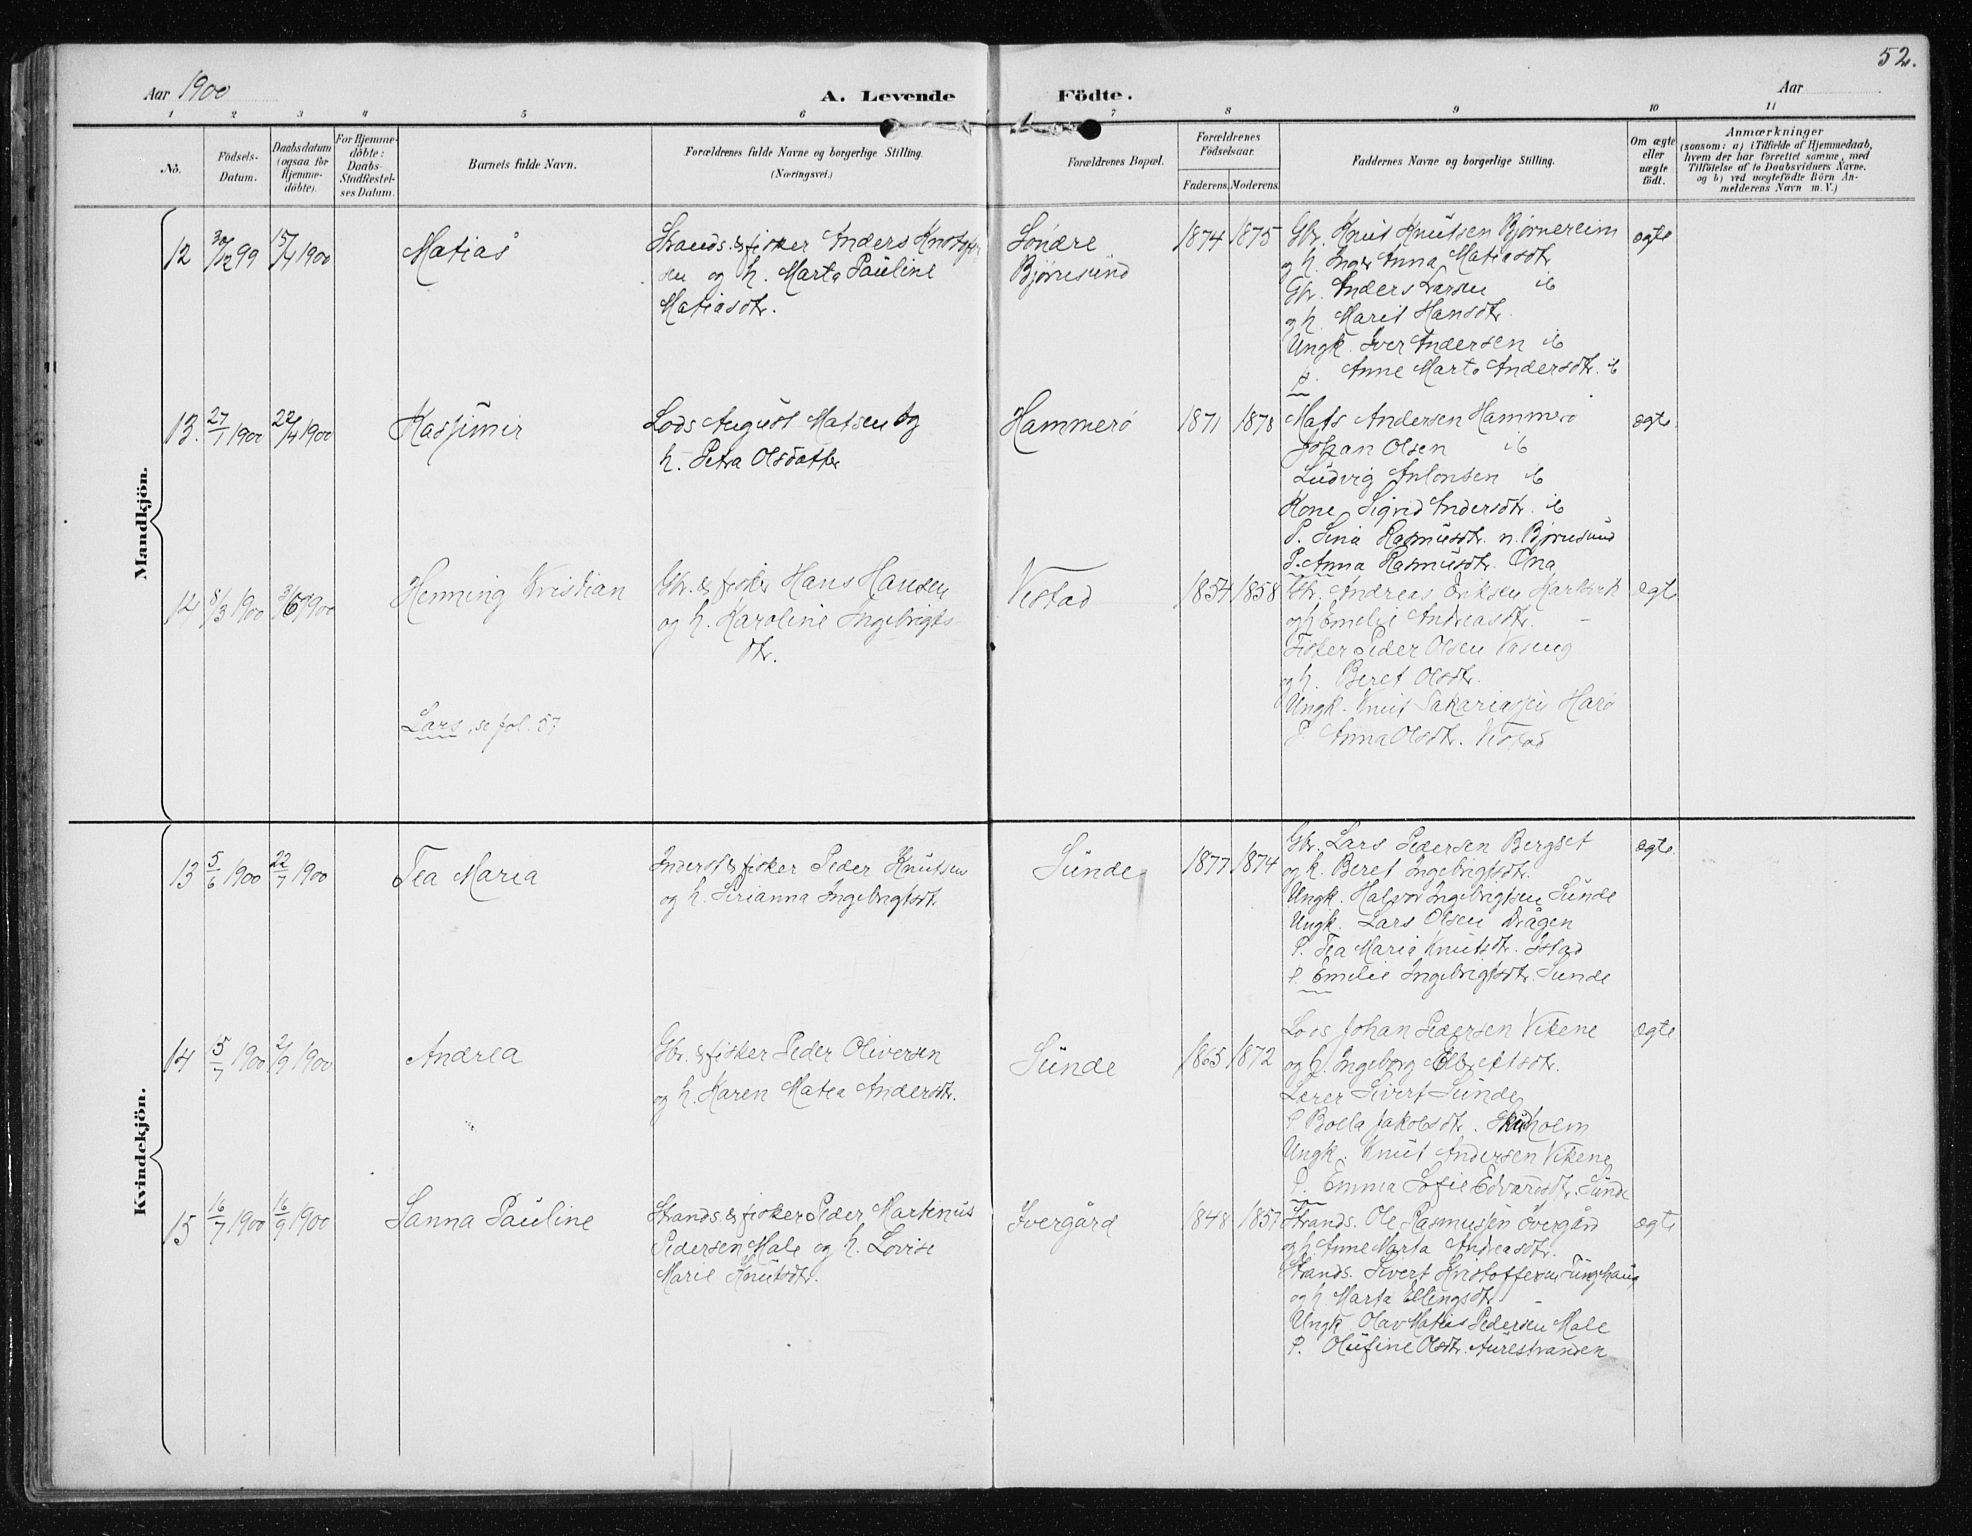 52.
Aar 1900
A. Levende Födte.
Aar
1 2 3 4 5 6 7 8 9 10 11
No.
Födsels-Datum.
Daabsdatum (ogsaa for Hjemme-döbte).
For Hjemme-döbte: Daabs-Stadfæstel-ses Datum.
Barnets fulde Navn.
Forældrenes fulde Navne og borgerlige Stilling.
(Næringsvei.)
Forældrenes Bopæl.
Forældrenes Födselsaar.
Faderens. Moderens.
Faddernes Navne og borgerlige Stilling.
Om ægte eller uægte födt.
Anmærkninger
(saasom: a) i Tilfælde af Hjemmedaab,
hvem der har forrettet samme, med
Tilföielse af to Daabsvidners Navne.
og b) ved uægtefödte Börn An-
melderens Navn m. V.)
Mandkjön.
12 30/12 99 15/4 1900 Matias
Strands. & fisker Anders
sen og h. Marta Pauline
Matiasdtr.
Søndre
Bjørnsund
1874 1875
Gbr. Knut Knutsen Bjørnereim
og h. Inger Anna Matiasdtr
Gbr. Anders Larsen ib
og h. Marit Hansdtr.
Ungk. Iver Andersen ib
P. Anne Marta Andersdtr. ib
ægte
13. 27/1 1900 22/4 1900 Kasjimir
Lods August Matsen og
h. Petra Olsdatter
Hammerø
1871 1878
Mats Andersen Hammerø
Johan Olsen ib
Ludvig Antonsen ib
Kone Sigrid Andersdtr. ib
P. Sina Rasmusdtr. n. Bjørnsund
P. Anna Rasmusdtr. Ona
ægte
14 8/3 1900 3/6 1900 Henning Kristian
Gbr. & fisker Hans Hansen
og h. Karoline Ingebrigts-
dtr.
Vestad
1854 1858
Gbr. Andreas Eriksen
og h Emelie Andreasdtr.
Fisker Peder Olsen
og h. Beret Olsdtr.
Ungk. Knut Sakariassen Harø
P. Anna Olsdtr. Vestad
ægte
Lars, se fol. 57
Kvindekjön.
13 5/6 1900 22/7 1900 Tea Maria
Inderst & fisker Peder Knutsen
og h. Sirianna Ingebrigtsdt.
Sunde
1877 1874
Gbr. Lars Pedersen Bergset
og h. Beret Ingebrigtsdtr.
Ungk. Halvor Ingebrigtsen Sunde
Ungk. Lars Olsen Drågen
P. Tea Maria Knutsdtr.
P. Emelie Ingebrigtsdtr. Sunde
ægte
14 5/7 1900 2/9 1900 Andrea
Gbr. & fisker Peder Oliversen
og h. Karen Matea Andersdtr.
Sunde
1865 1872
Lods Johan Pedersen Vikene
og h. Ingeborg
Lærer Sivert Sunde
P. Bolla Jakobsdtr.
Ungk. Knut Andersen Vikene
P. Emma Sofie Edvardsdtr. Sunde
ægte
15 16/7 1900 16/9 1900 Sanna Pauline
Strands & fisker Peder Martinus
Pedersen Male og h. Lovise
Marie Knutsdtr.
Ivergård
1848 1857
Strands. Ole Rasmussen Ivergård
og h. Anne Marta Andreasdtr.
Strands. Sivert Kristoffersen Tungehaug
og h Marta Ellingsdtr
Ungk. Olav Matias Pedersen Male
P. Olufine Olsdtr. Aurestranden
ægte